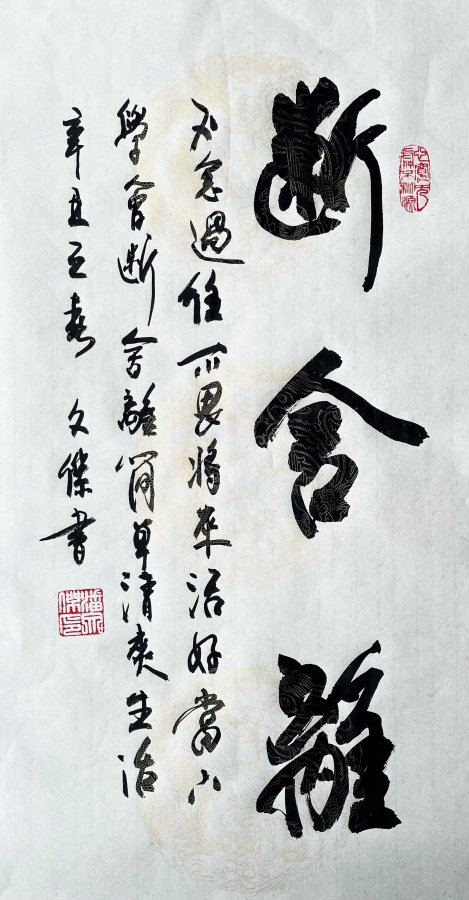 断舍離
不念過往不畏將來活好當下
學會断舍離简单清爽生活
辛丑立春 文傑書